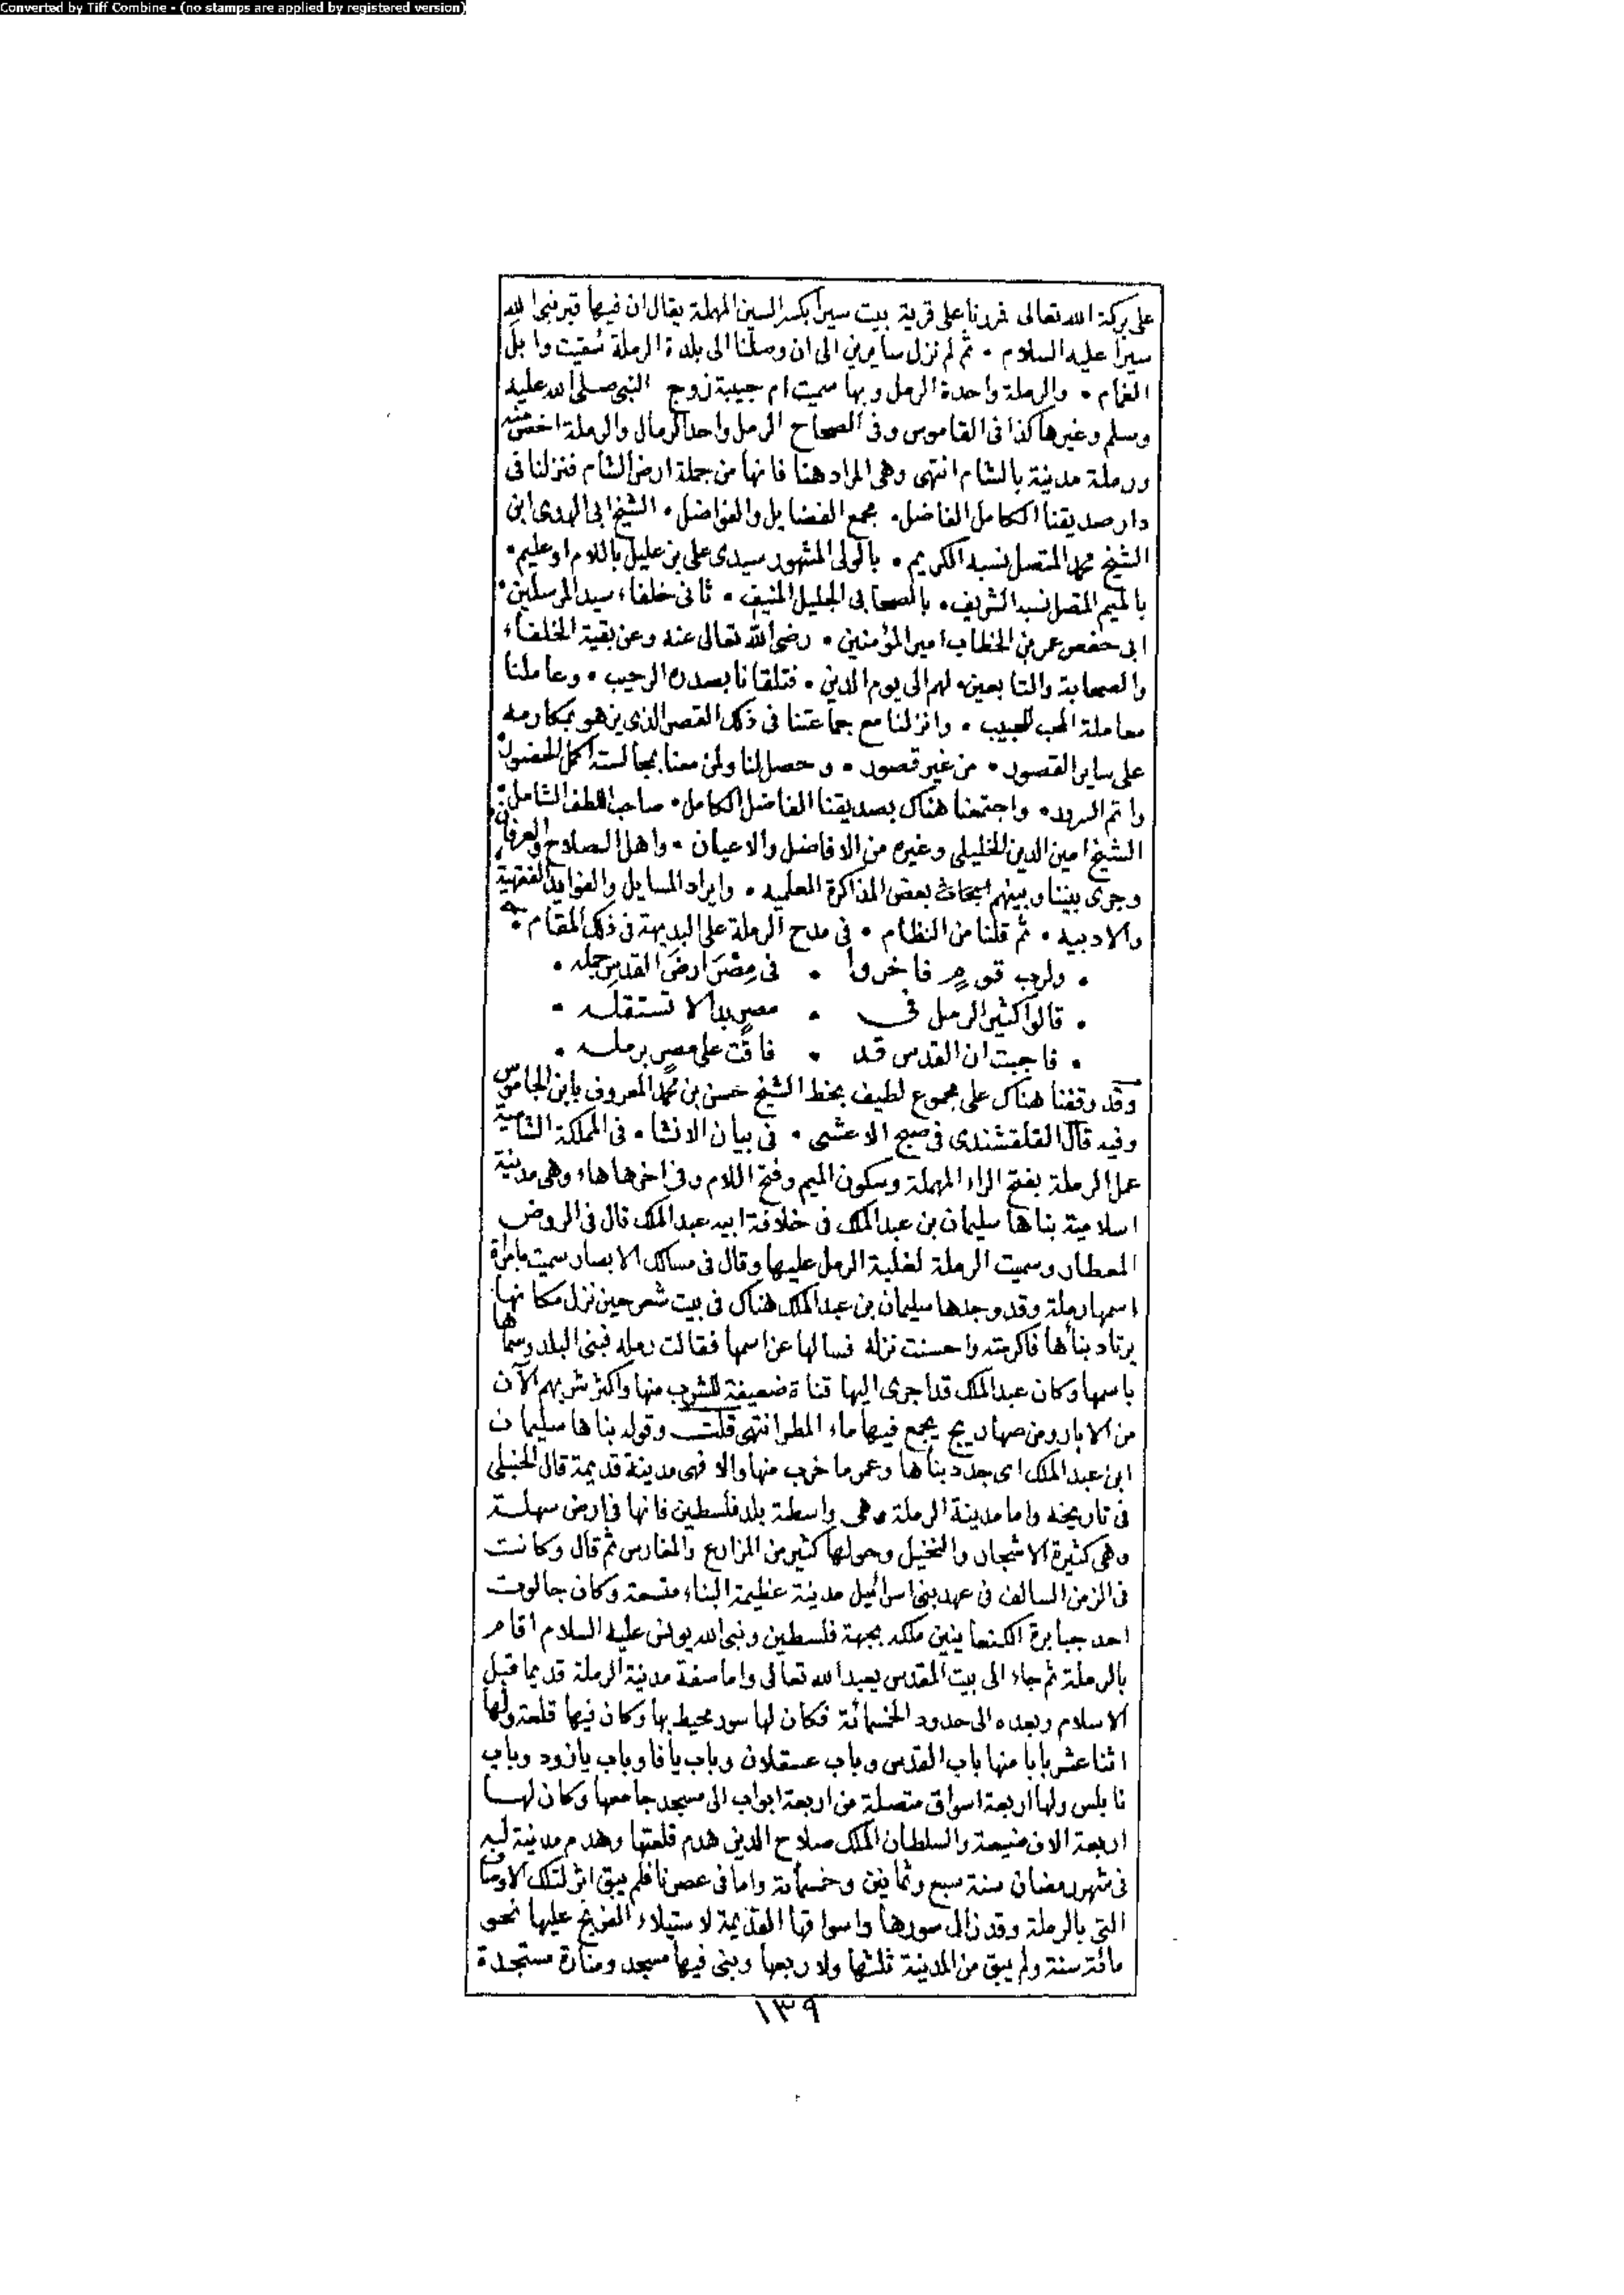 Converted by Tiff Combine - (no stamps are applied by registered version)
على بركة الله تعالى فمررنا على قرية بيت سيرا بكسر السين المهملة يقال ان فيها قبر نبى الله
سيرا عليه السلام . ثم لم نزل سايرين الى ان وصلنا الى بلدة الرملة سُقيت وابل
الغمام . والرملة واحدة الرمل وبها سميت ام حبيبة زوج النبى صلى الله عليه
وسلم وغيرها كذا فى القاموس وفى الصحاح الرمل واحد الرمال والرملة اخص منه
ورملة مدينة بالشام انتهى وهى المراد هنا فانها من جملة ارض الشام فنزلنا فى
دار صديقنا الكامل الفاضل . مجمع الفضايل والفواضل . الشيخ ابى الهدى ابن
الشيخ محمد المتصل نسبه الكريم . بالولى المشهور سيدى على بن عليل باللام او عليم .
بالميم المتصل نسبه الشريف . بالصحابى الجليل المنيف . ثانى خلفاء سيد المرسلين .
ابى حفص عمر بن الخطاب امير المؤمنين . رضى الله تعالى عنه وعن بقية الخلفاء
والصحابة والتابعين لهم الى يوم الدين . فتلقانا بصدره الرحيب . وعاملنا
معاملة المحب للحبيب . وانزلنا مع جماعتنا فى ذلك القصر الذى يزهو بمكارمه
على ساير القصور . من غير قصور . وحصل لنا ولمن معنا بمجالسته اكمل الحضور .
واتم السرور . واجتمعنا هناك بصديقنا الفاضل الكامل . صاحب اللطف الشامل .
الشيخ امين الدين الخليلى وغيره من الافاضل والاعيان . واهل الصلاح والعرفان
وجرى بيننا وبينهم ابحاث بعض المذاكرة العلميه . وايراد المسايل والفوايد الفقهية
والادبيه . ثم قلنا من النظام . فى مدح الرملة على البديهة فى ذلك المقام .
. ولرب قومٍ فاخروا . فى مِصْرَ ارضَ القدس جمله .
. قالوا كثير الرمل فى . مصرٍ بدا لا تستقله .
. فاجبت ان القدس قد . فاقت على مصرٍ برمله .
وقد وقفنا هناك على مجموع لطيف بخط الشيخ حسن بن محمد المعروف بابن الجاموس
وفيه قال القلقشندى فى صبح الاعشى . فى بيان الانشا . فى المملكة الشامية
عمل الرملة بفتح الراء المهملة وسكون الميم وفتح اللام وفى اخرها هاء وهى مدينة
اسلامية بناها سليمان بن عبد الملك فى خلافة ابيه عبد الملك قال فى الروض
المعطار وسميت الرملة لغلبة الرمل عليها وقال فى مسالك الابصار سميت بامراة
اسمها رملة وقد وجدها سليمان بن عبد الملك هناك فى بيت شعر حين نزل مكانها
يرتاد بناءها فاكرمته واحسنت نزله فسالها عن اسمها فقالت رمله فبنى البلد وسماها
باسمها وكان عبد الملك قد اجرى اليها قناة ضعيفة للشرب منها واكثر شربهم الآن
من الابار ومن صهاريج يجمع فيها ماء المطر انتهى قلت وقوله بناها سليمان
ابن عبد الملك اى جدد بناها وعمر ما خرب منها والا فهى مدينة قديمة قال الحنبلى
فى تاريخه واما مدينة الرملة وهى واسطة بلد فلسطين فانها فى ارض سهلة
وهى كثيرة الاشجار والنخيل وحولها كثير من المزارع والمغارس ثم قال وكانت
فى الزمن السالف فى عهد بنى اسرائيل مدينة عظيمة البناء متسعة وكان جالوت
احد جبابرة الكنعانيين ملكه بجهة فلسطين ونبى الله يونس عليه السلام اقام
بالرملة ثم جاء الى بيت المقدس يعبد الله تعالى واما صفة مدينة الرملة قديما قبل
الاسلام وبعده الى حدود الخمسمائة فكان لها سور محيط بها وكان فيها قلعة ولها
اثنا عشر بابا منها باب القدس وباب عسقلان وباب يافا وباب يازور وباب
نابلس ولها اربعة اسواق متصلة من اربعة ابواب الى مسجد جامعها وكان لها
اربعة الاف ضيعة والسلطان الملك صلاح الدين هدم قلعتها وهدم مدينة لد
فى شهر رمضان سنة سبع وثمانين وخمسمائة واما فى عصرنا فلم يبق اثر لتلك الاوصاف
التى بالرملة وقد زال سورها واسواقها القديمة لاستيلاء الفرنج عليها نحو
مائة سنة ولم يبق من المدينة ثلثها ولا ربعها وبنى فيها مسجد ومنارة مستجدة
١٣٩